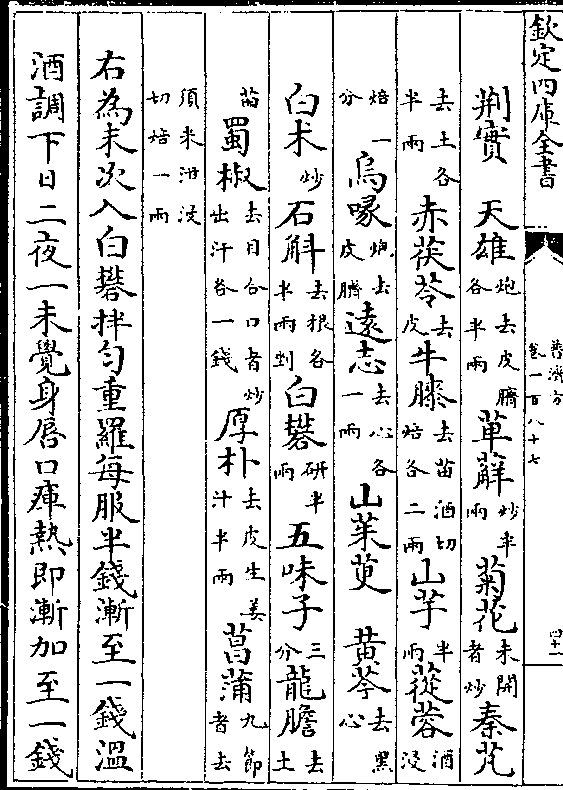 欽定四庫全書
普濟方
卷一百八十七
四十一
荆實 天雄炮去皮臍各半兩 萆薢炒半兩 菊花未開者炒 秦艽
去土各半兩 赤茯苓去皮 牛膝去苗酒切焙各二兩 山芋半兩 蓯蓉酒浸
焙一分 烏喙炮去皮臍 遠志去心各一兩 山茱萸 黃芩去黑心
白朮炒 石斛去根各半兩剉 白礬研半兩 五味子三分 龍膽去土
苗 蜀椒去目合口者炒出汗各一錢 厚朴去皮生姜汁半兩 菖蒲九節者去
須米泔浸切焙一兩
右為末次入白礬拌勻重羅每服半錢漸至一錢溫
酒調下日二夜一未覺身唇口痺熱即漸加至一錢